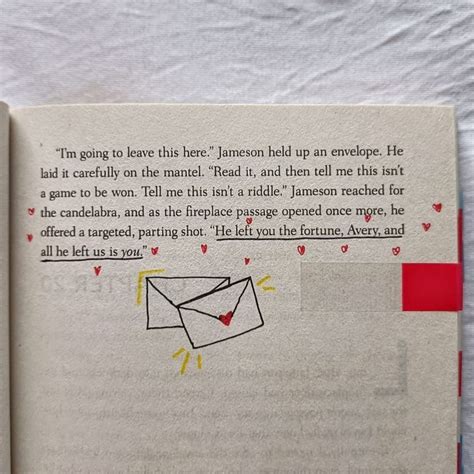 "I'm going to leave this here." Jameson held up an envelope. He
laid it carefully on the mantel. "Read it, and then tell me this isn't
a game to be won. Tell me this isn't a riddle." Jameson reached for
the candelabra, and as the fireplace passage opened once more, he
offered a targeted, parting shot. "He left you the fortune, Avery, and
all he left us is you."